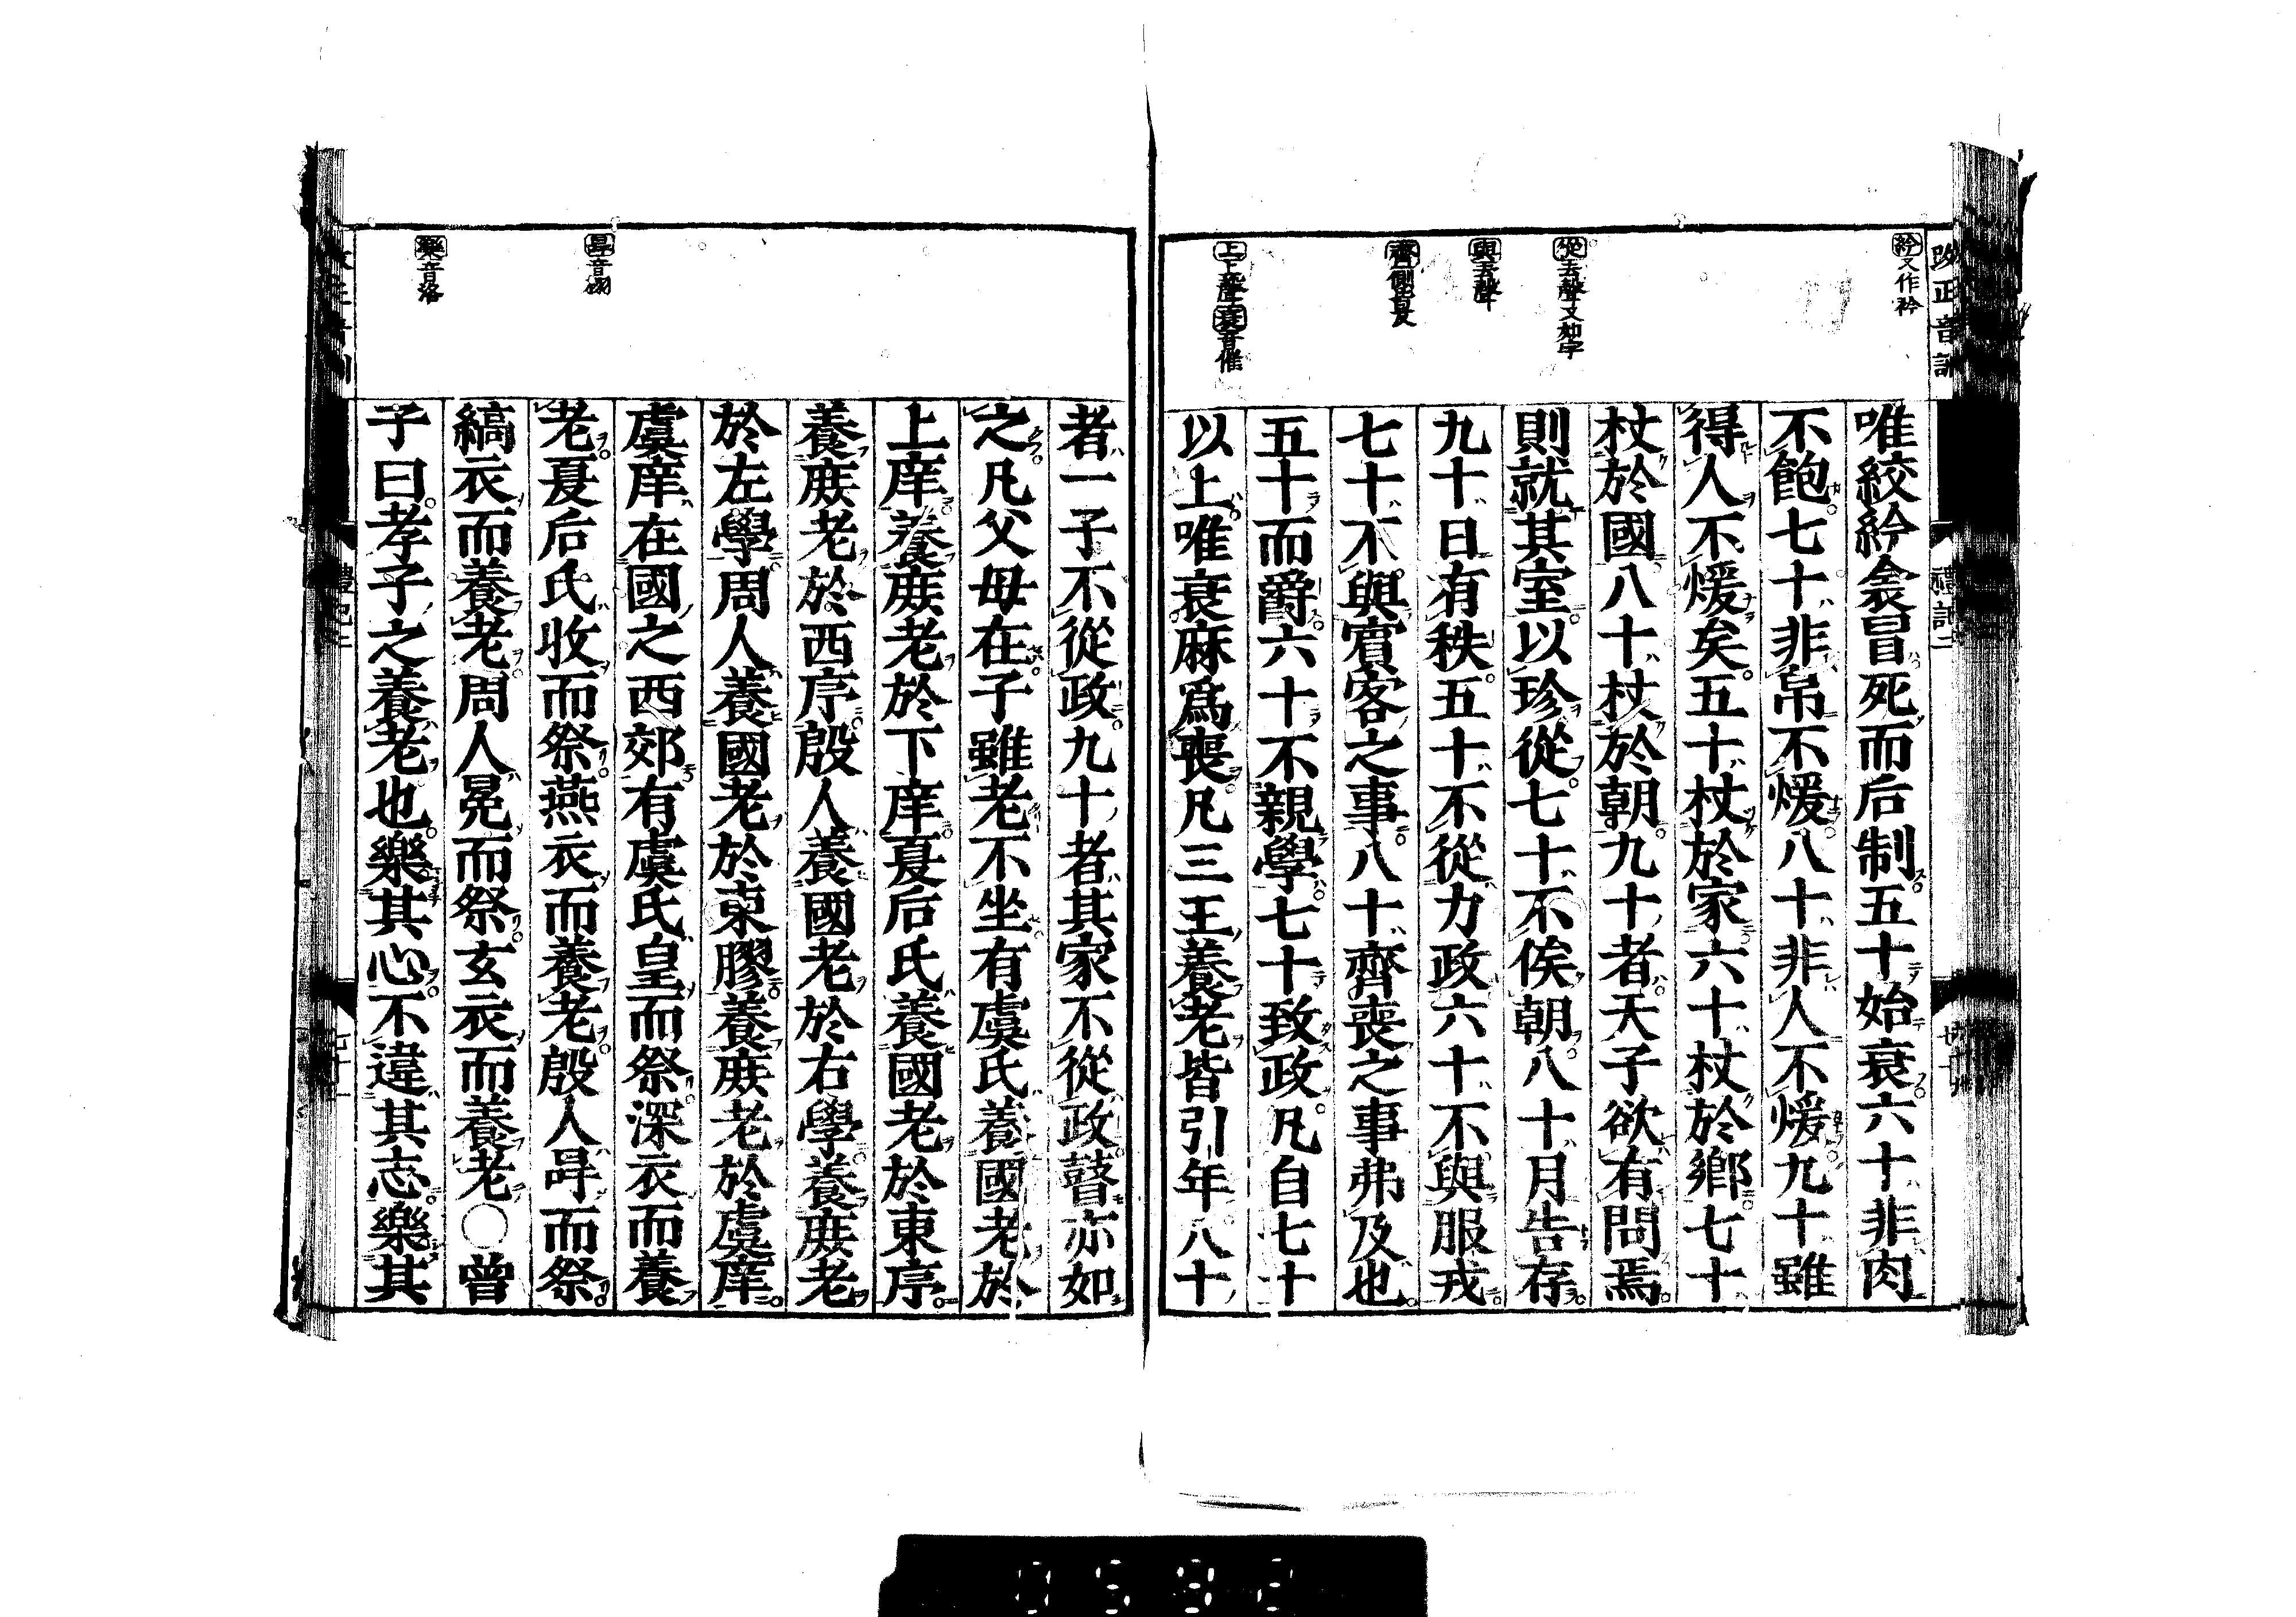 改正音訓
禮記二
紟又作衿
從去聲又如字
與去聲
齊側皆反
上上聲衰音催
唯絞紟衾冒死而后制五十始衰六十非肉
不飽七十非帛不煖八十非人不煖九十雖
得人不煖矣五十杖於家六十杖於鄉七十
杖於國八十杖於朝九十者天子欲有問焉
則就其室以珍從七十不俟朝八十月告存
九十日有秩五十不從力政六十不與服戎
七十不與賓客之事八十齊喪之事弗及也
五十而爵六十不親學七十致政凡自七十
以上唯衰麻爲喪凡三王養老皆引年八十
冔音詡
樂音洛
者一子不從政九十者其家不從政瞽亦如
之凡父母在子雖老不坐有虞氏養國老於
上庠養庶老於下庠夏后氏養國老於東序
養庶老於西序殷人養國老於右學養庶老
於左學周人養國老於東膠養庶老於虞庠
虞庠在國之西郊有虞氏皇而祭深衣而養
老夏后氏收而祭燕衣而養老殷人冔而祭
縞衣而養老周人冕而祭玄衣而養老○曾
子曰孝子之養老也樂其心不違其志樂其
禮記二